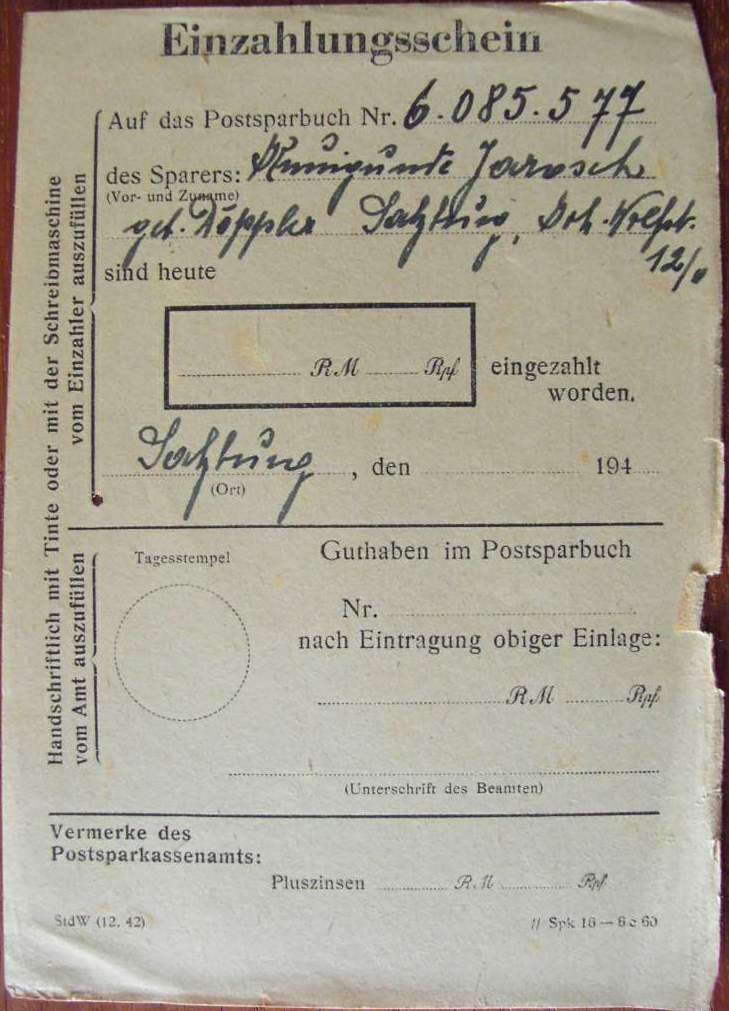 Einzahlungsschein
Auf das Postsparbuch Nr. 6.085.577
des Sparers: Kunigunde Jarosch
(Vor- und Zuname)
geb. Döppler Salzburg,
12/
sind heute
RM Rpf eingezahlt
worden.
Salzburg, den 194
(Ort)
Handschriftlich mit Tinte oder mit der Schreibmaschine
vom Einzahler auszufüllen
vom Amt auszufüllen
Tagesstempel
Guthaben im Postsparbuch
Nr.
nach Eintragung obiger Einlage:
RM Rpf
(Unterschrift des Beamten)
Vermerke des
Postsparkassenamts:
Pluszinsen RM Rpf
StdW (12. 42)
// Spk 16 — 6 c 60